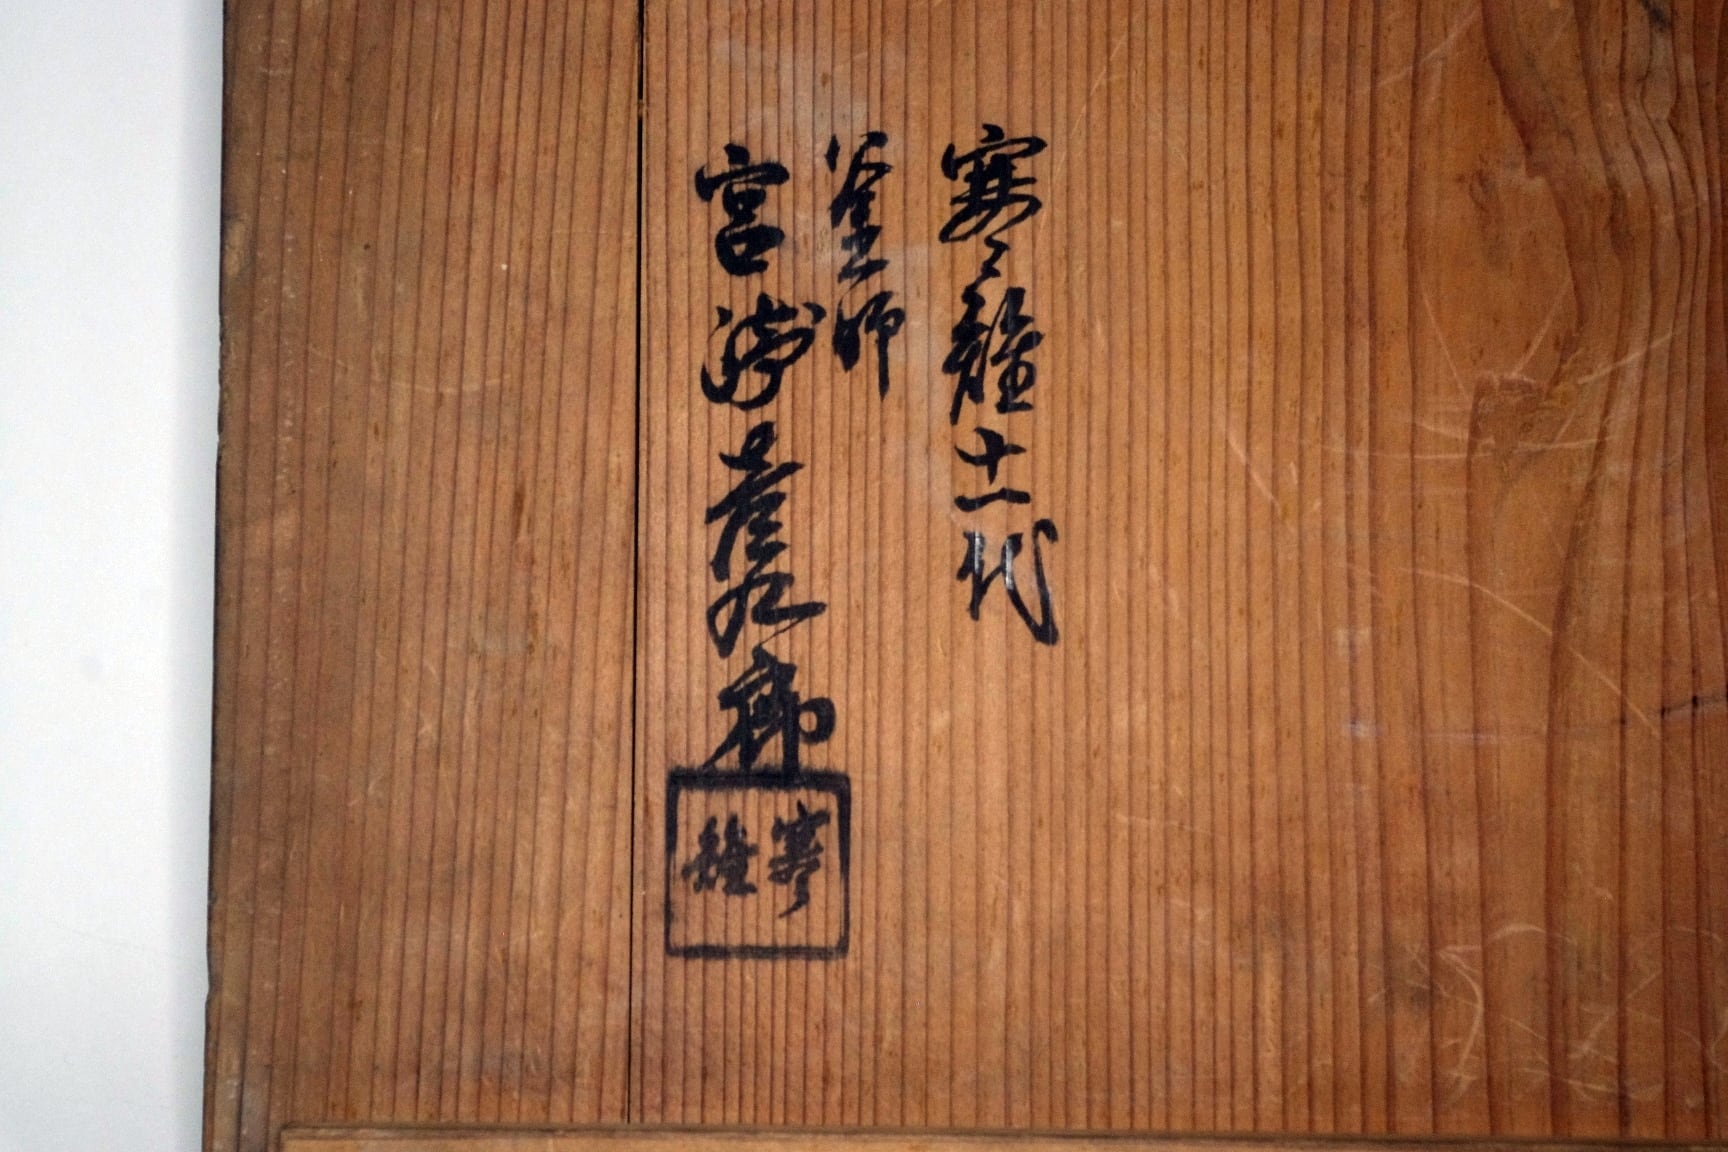 寒雉十一代
釜師
宮﨑彦九郎
寒雉